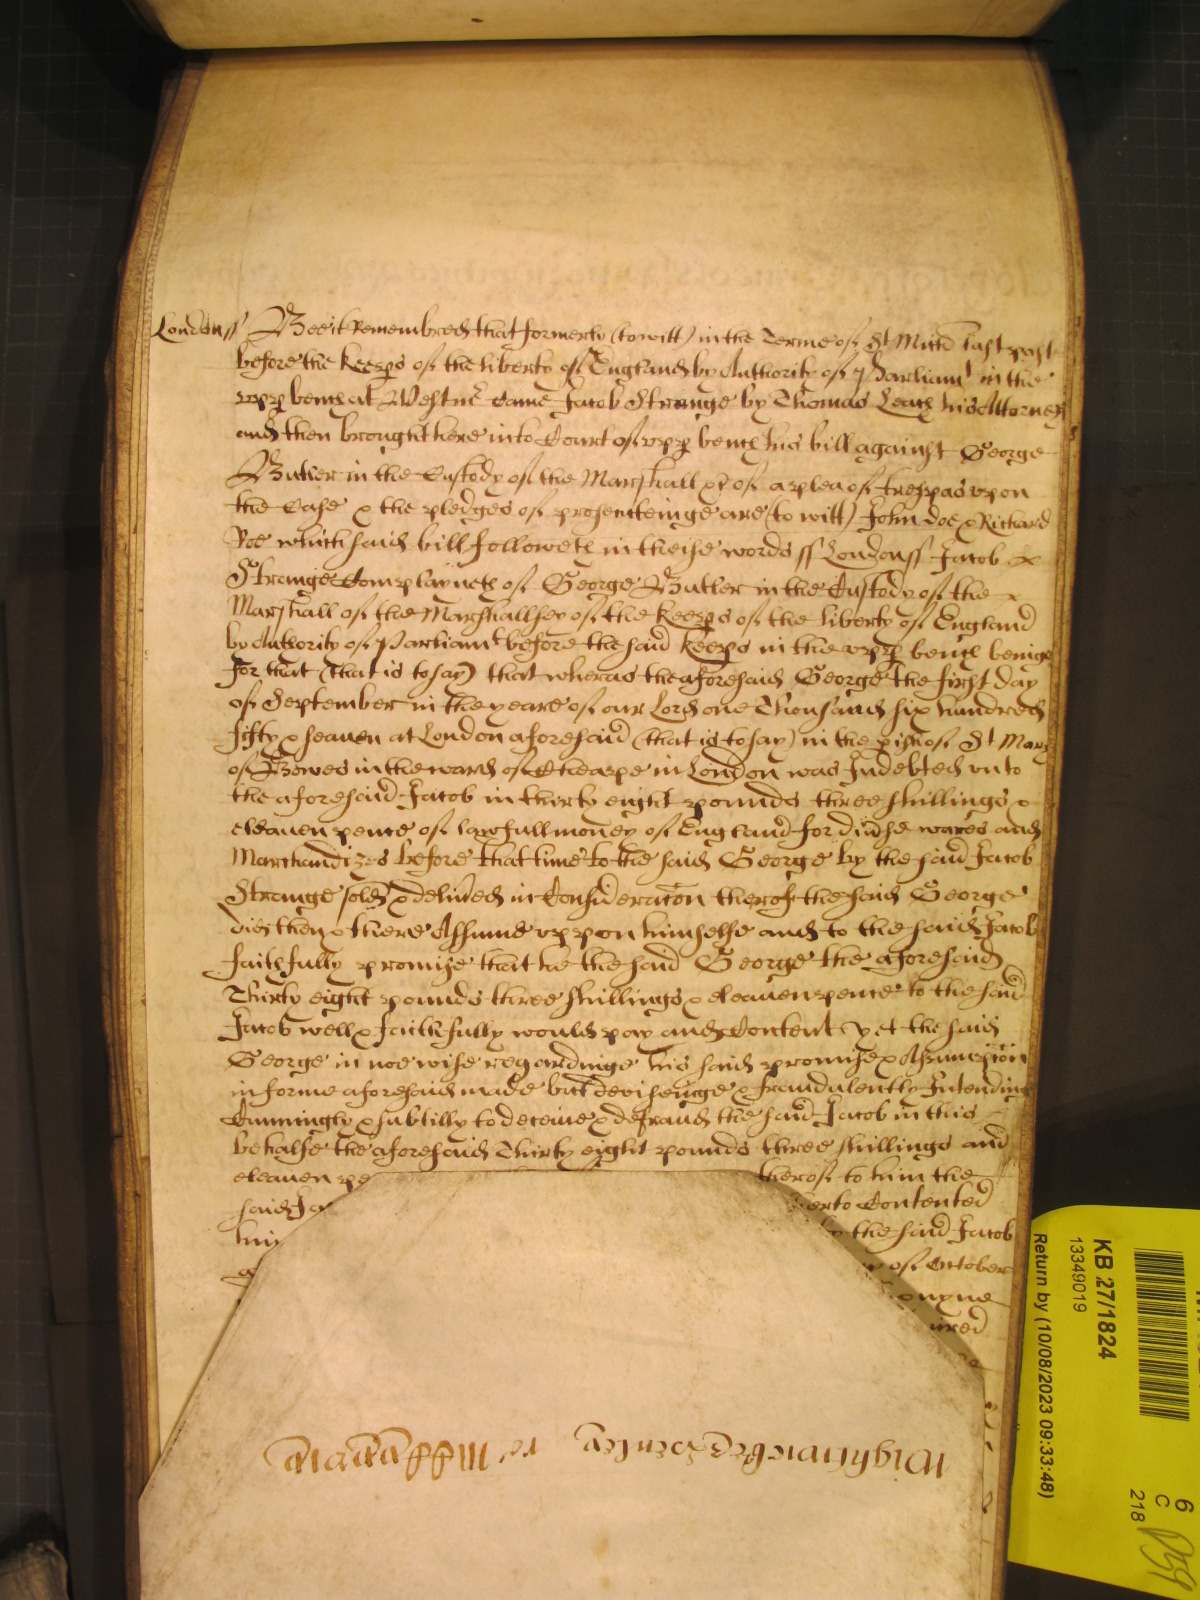 Londonss Bee it Remembred that formerly (to witt) in the Terme of St Mich last past
before the keeps of the liberty of England by Authority of Parliamt in the
upp bench at Westmr Came Jacob Strange by Thomas Leach his Attorney
and then brought here into Court of upp bench his bill against George
Butler in the Custody of the Marshall &c of a plea of trespas upon
the Case & the pledges of prosecteinge are (to witt) John Doe & Richard
Roe which said bill followeth in theise words ss Londonss Jacob
Strange Complayneth of George Butler in the Custody of the
Marshall of the Marshallsey of the keeps of the liberty of England
by Authority of Parliamt before the said keeps in the upp bench beinge
for that (that is to say) that wheras the aforesaid George the first day
of September in the yeare of our Lord one Thousand six hundred
fifty & seaven at London aforesaid (that is to say) in the pish of St Mary
of Bowes in the ward of Cheape in London was Indebted unto
the aforesaid Jacob in thirty eight pounds three shillings &
eleaven pence of lawfull money of England for divse wares and
Marchandizes before that time to the said George by the said Jacob
Strange sold & delived in Consideracon therof the said George
did then & there Assume uppon himselfe and to the said Jacob
faithfully promise that he the said George the aforesaid
Thirty eight pounds three shillings & eleaven pence to the said
Jacob well & faithfully would pay and Content Yet the said
George in noe wise regardinge his said promise & Assumpcon
in forme aforesaid made but deviseinge & fraudulently Intending
Cunningly & subtilly to deceive & defraud the said Jacob in this
behalfe the aforesaid Thirty eight pounds three shillings and
eleaven pe therof to him the
said Ja erto Contented
him the said Jacob
of October
ired
KB 27/1824
13349019
Return by (10/08/2023 09:33:48)
6
C
218